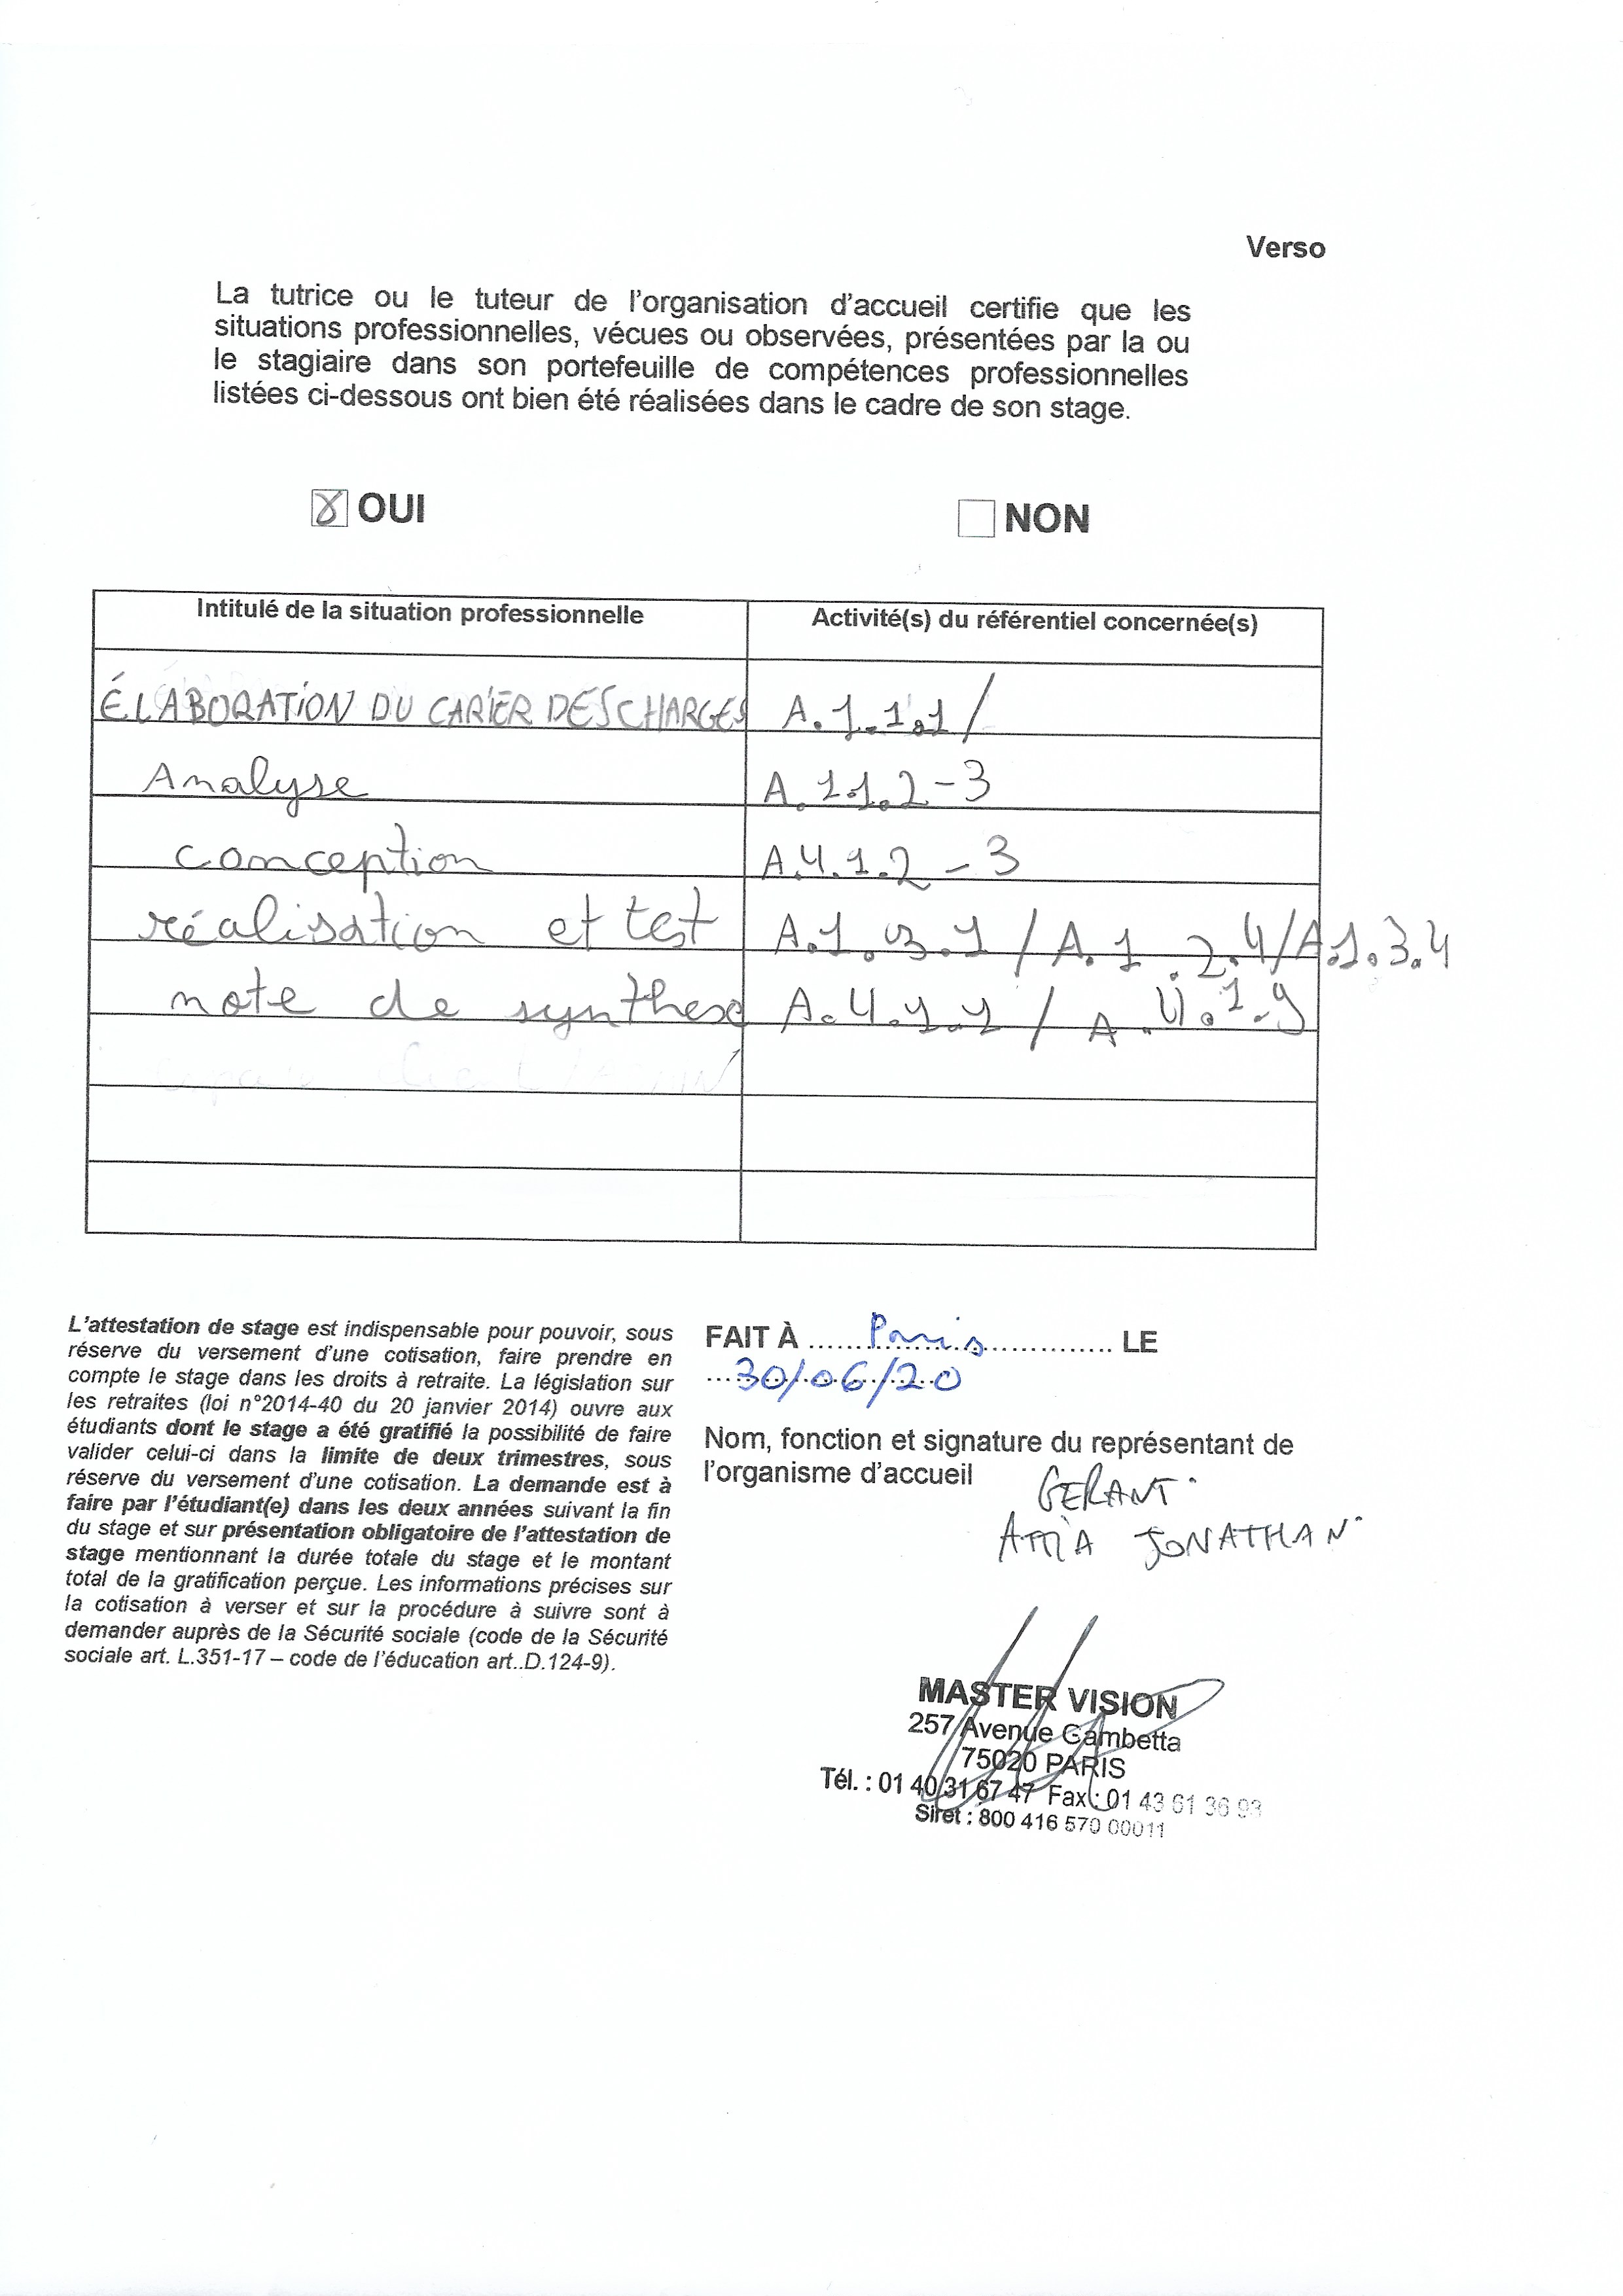 Verso
La tutrice ou le tuteur de l'organisation d'accueil certifie que les
situations professionnelles, vécues ou observées, présentées par la ou
le stagiaire dans son portefeuille de compétences professionnelles
listées ci-dessous ont bien été réalisées dans le cadre de son stage.
OUI NON
Intitulé de la situation professionnelle Activité(s) du référentiel concernée(s)
ÉLABORATION DU CARIER DES CHARGES A.1.1.1/
Analyse A.1.1.2-3
conception A.4.1.2-3
réalisation et test A.1.3.1/A.1.2.4/A.1.3.4
note de synthese A.4.1.1/A.4.1.9
L'attestation de stage est indispensable pour pouvoir, sous
réserve du versement d'une cotisation, faire prendre en
compte le stage dans les droits à retraite. La législation sur
les retraites (loi n°2014-40 du 20 janvier 2014) ouvre aux
étudiants dont le stage a été gratifié la possibilité de faire
valider celui-ci dans la limite de deux trimestres, sous
réserve du versement d'une cotisation. La demande est à
faire par l'étudiant(e) dans les deux années suivant la fin
du stage et sur présentation obligatoire de l'attestation de
stage mentionnant la durée totale du stage et le montant
total de la gratification perçue. Les informations précises sur
la cotisation à verser et sur la procédure à suivre sont à
demander auprès de la Sécurité sociale (code de la Sécurité
sociale art. L.351-17 – code de l'éducation art..D.124-9).
FAIT À ........Paris........................ LE
...30/06/20
Nom, fonction et signature du représentant de
l'organisme d'accueil
GERANT
ATTIA JONATHAN
MASTER VISION
257 Avenue Gambetta
75020 PARIS
Tél. : 01 40 31 67 47 Fax : 01 43 61 36 93
Siret : 800 416 570 00011